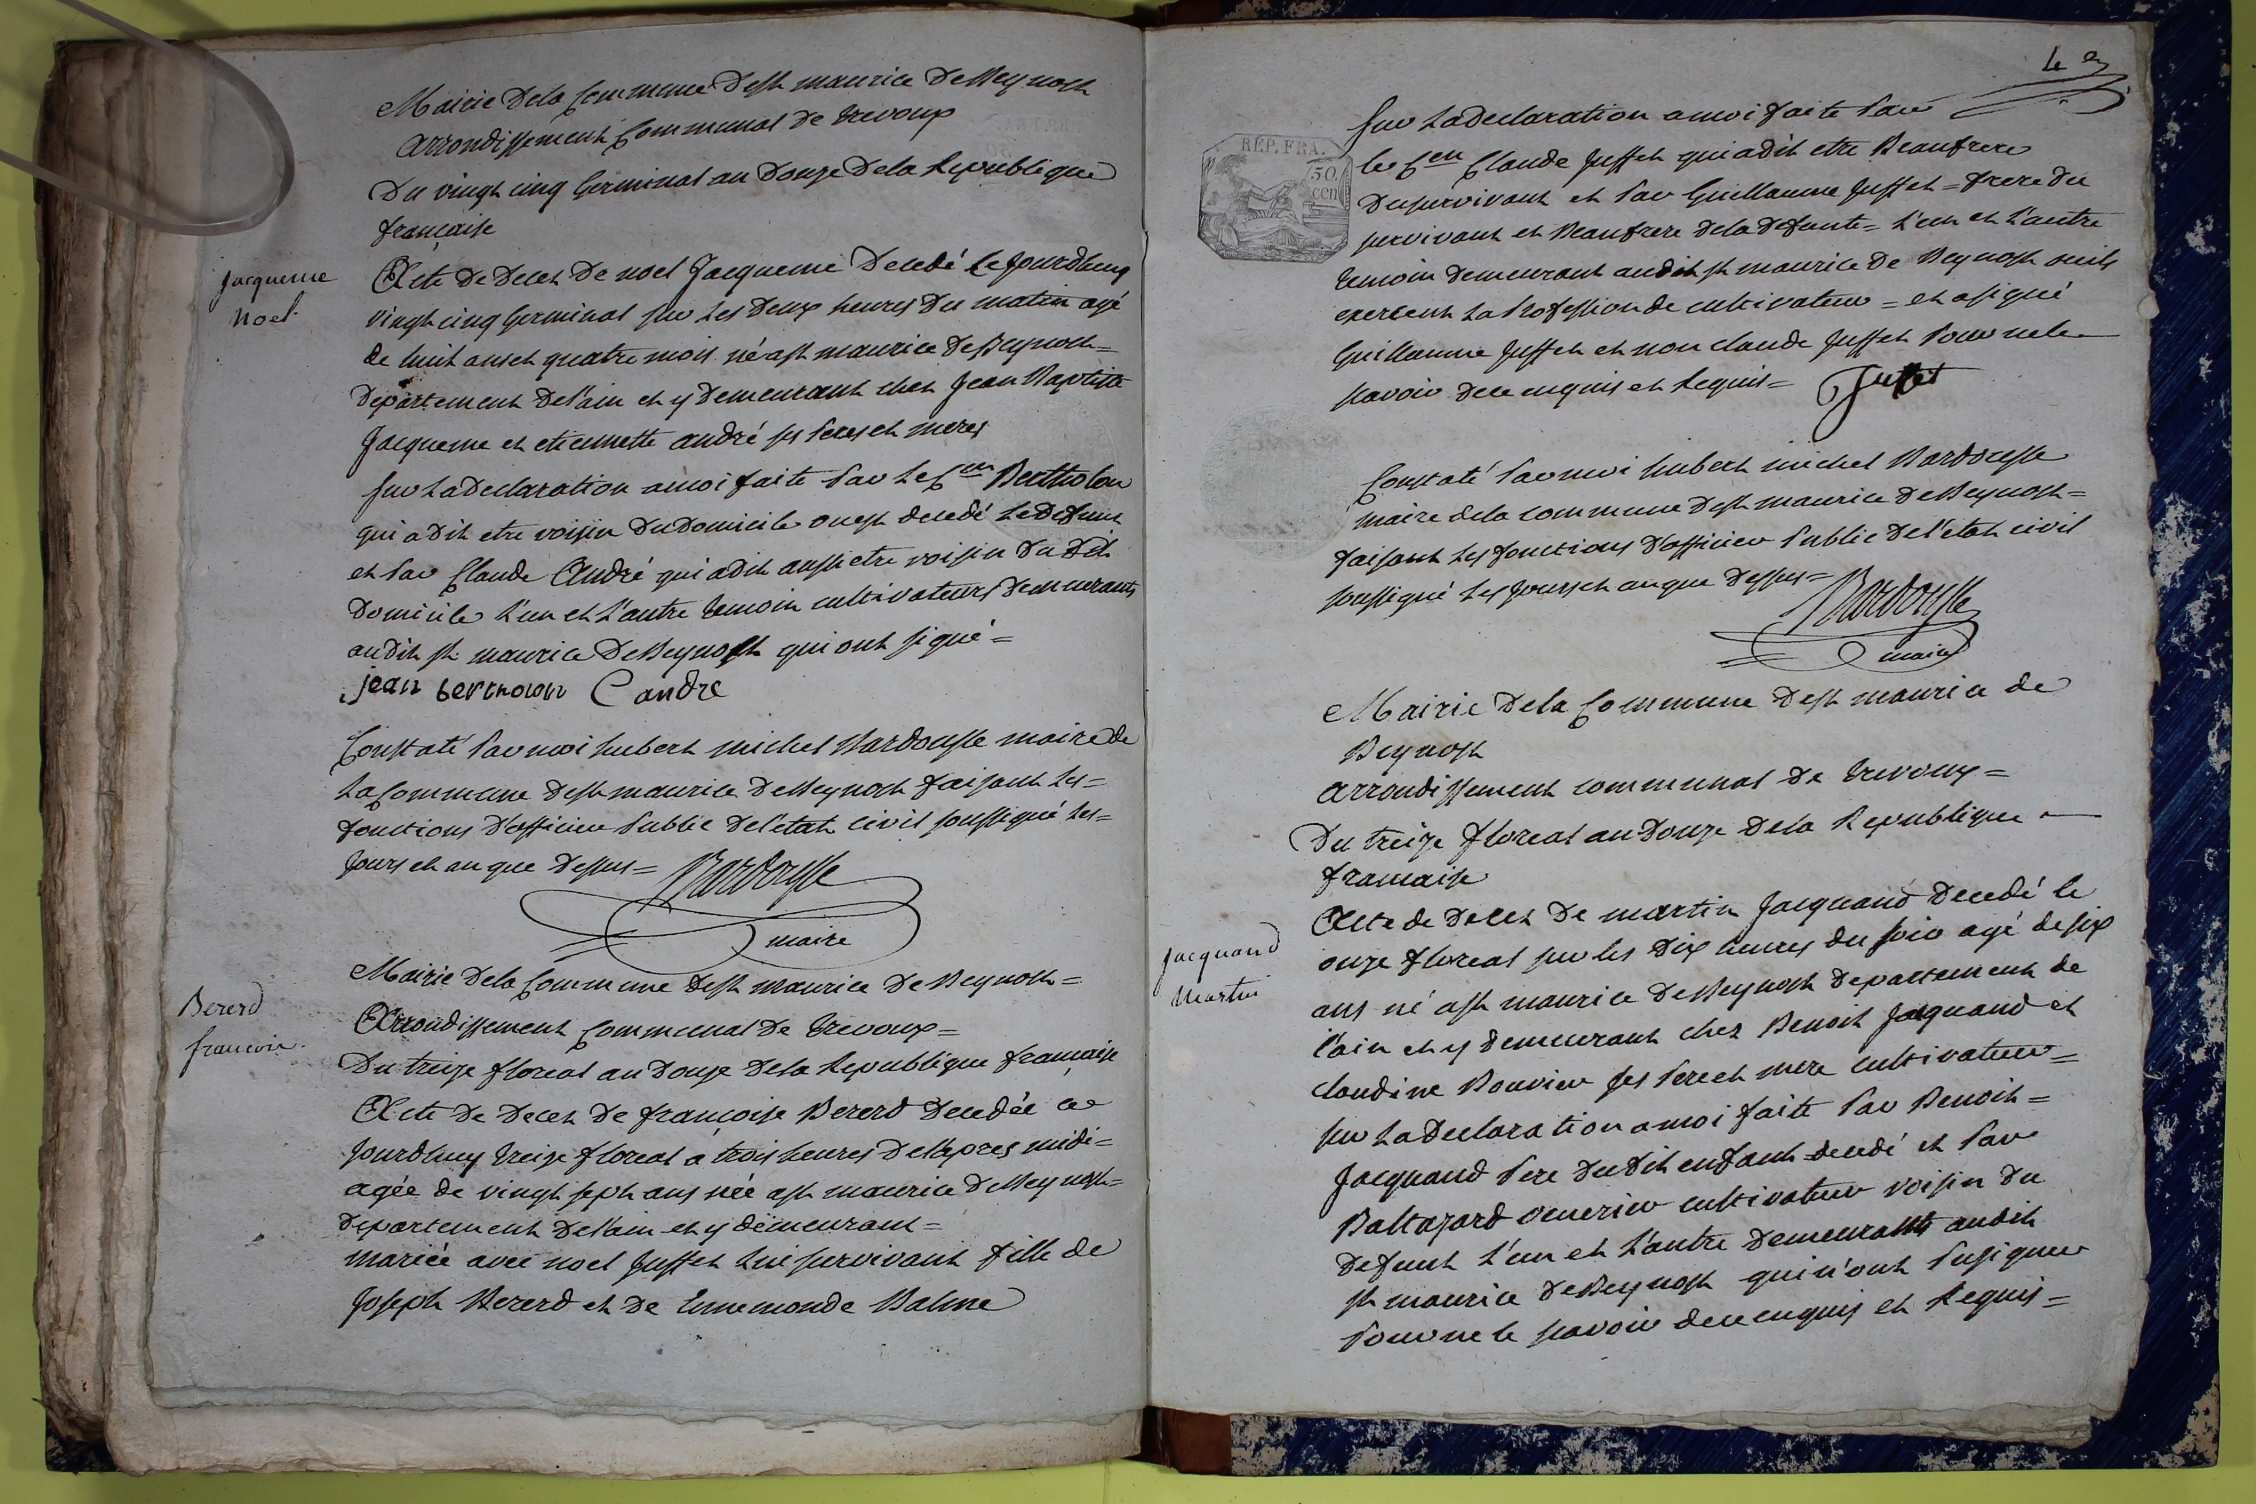 Mairie de la Commune de st maurice de Beynost
arrondissement Communal de trevoux
Du vingt cinq Germinal an Douze de la Republique
française
Jacqueme
Noel.
Acte de Deces de noel Jacqueme Decedé le Jourdhuy
vingt cinq Germinal sur les deux heures du matin agé
de huit ans et quatre mois né a st maurice de Beynost =
departement de l'ain et y demeurant chez Jean Baptiste
Jacqueme et etiennette andré ses peres et meres
sur la Declaration a moi faite par le Cen Bertholon
qui a dit etre voisin du domicile ou est decedé le defunt
et par Claude André qui a dit aussi etre voisin du dit
domicile l'un et l'autre temoin cultivateurs demeurants
audit st maurice de Beynost qui ont signé =
jean bertholon C andre
Constaté par moi hubert michel Bardousse maire de
la Commune de st maurice de Beynost faisant les =
fonctions d'officier public de l'etat civil soussigné les =
jours et an que dessus = Bardousse
maire
Mairie de la Commune de st maurice de Beynost =
Arrondissement Communal de trevoux =
Bererd
francoise.
Du treize floreal an Douze de la Republique française
Acte de Deces de françoise Bererd Decedée ce
Jourdhuy treize floreal a trois heures de l'apres midi =
agée de vingt sept ans née a st maurice de Beynost =
departement de l'ain et y demeurant =
mariée avec noel Juffet lui survivant fille de
Joseph Bererd et de Ennemonde Balme
sur la declaration a moi faite par
REP. FRA.
50
cen
le Cen Claude Juffet qui a dit etre Beaufrere
du survivant et par Guillaume Juffet = frere du
survivant et Beaufrere de la defunte = l'un et l'autre
temoin demeurant audit st maurice de Beynost ou ils
exercent la Profession de cultivateur = et a signé
Guillaume Juffet et non claude Juffet pour ne le
savoir de ce enquis et Requis = Juffet
Constaté par moi hubert michel Bardousse
maire de la commune de st maurice de Beynost =
faisant les fonctions d'officier Public de l'etat civil
soussigné les jours et an que dessus =
Bardousse
maire
Mairie de la Commune de st maurice de
Beynost
arrondissement communal de trevoux =
Du treize floreal an Douze de la Republique
francaise
Jacquand
Martin
Acte de Deces de martin Jacquand Decedé le
onze floreal sur les dix heures du soir agé de six
ans né a st maurice de Beynost departement de
l'ain et y demeurant chez Benoit Jacquand et
claudine Bouvier ses pere et mere cultivateur =
sur la declaration a moi faite par Benoit =
Jacquand pere du dit enfant decedé et par
Baltazard venerier cultivateur voisin du
defunt l'un et l'autre demeurants audit
st maurice de Beynost qui n'ont su signer
pour ne le savoir de ce enquis et Requis =